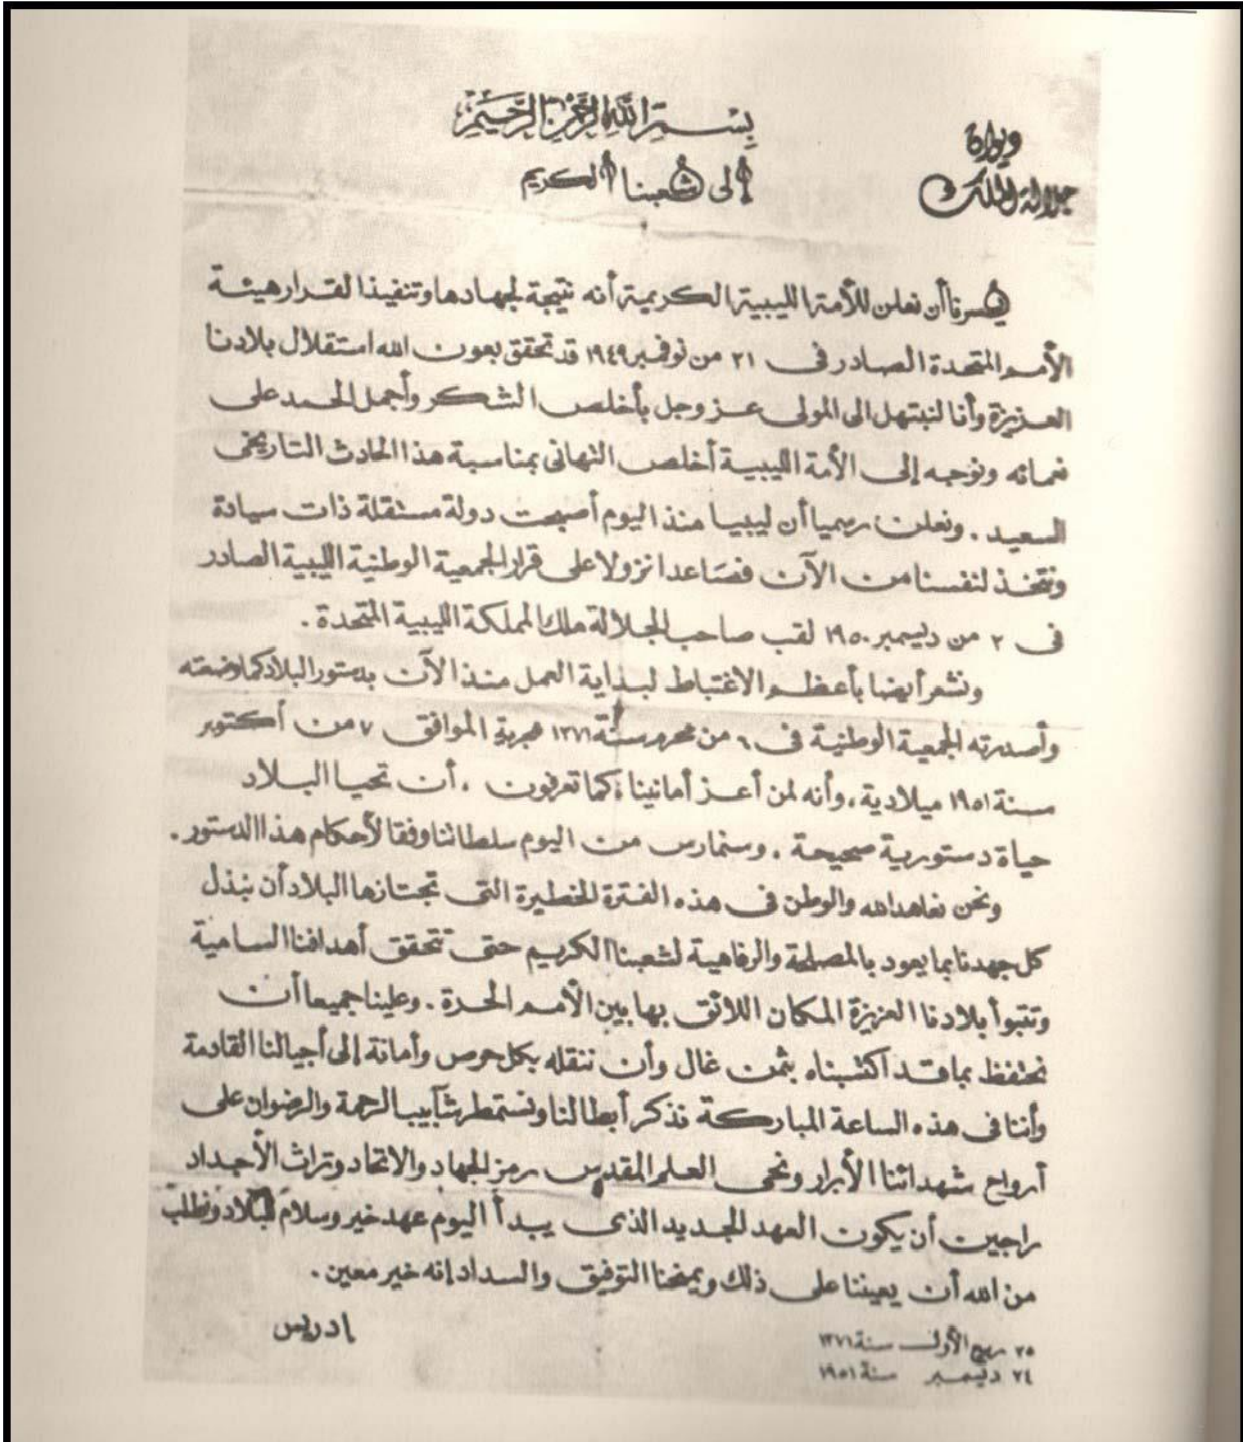 ديوان
جلالة الملك
بِسْمِ اللَّهِ الرَّحْمٰنِ الرَّحِيْمِ
إلى شعبنا الكريم
يسرنا أن نعلن للأمة الليبية الكريمة أنه نتيجة لجهادها وتنفيذا لقرار هيئة
الأمم المتحدة الصادر فى ٢١ من نوفمبر ١٩٤٩ قد تحقق بعون الله استقلال بلادنا
العزيزة وأنا لنبتهل الى المولى عز وجل بأخلص الشكر وأجمل الحمد على
نعمائه ونوجه إلى الأمة الليبية أخلص التهانى بمناسبة هذا الحادث التاريخى
السعيد . ونعلن رسميا أن ليبيا منذ اليوم أصبحت دولة مستقلة ذات سيادة
ونتخذ لنفسنا من الآن فصَاعدا نزولا على قرار الجمعية الوطنية الليبية الصادر
فى ٢ من ديسمبر ١٩٥٠ لقب صاحب الجلالة ملك المملكة الليبية المتحدة .
ونشعر أيضا بأعظم الاغتباط لبداية العمل منذ الآن بدستور البلاد كما وضعته
وأصدرته الجمعية الوطنية فى ٦ من محرم سنة ١٣٧١ هجرية الموافق ٧ من أكتوبر
سنة ١٩٥١ ميلادية ، وأنه لمن أعز أمانينا ، كما تعرفون ، أن تحيا البلاد
حياة دستورية صحيحة . وسنمارس من اليوم سلطاتنا وفقا لأحكام هذا الدستور .
ونحن نعاهد الله والوطن فى هذه الفترة الخطيرة التى تجتازها البلاد أن نبذل
كل جهدنا بما يعود بالمصلحة والرفاهية لشعبنا الكريم حتى تتحقق أهدافنا السامية
وتتبوأ بلادنا العزيزة المكان اللائق بها بين الأمم الحرة . وعلينا جميعا أن
نحتفظ بما قد اكتسبناه بثمن غال وأن ننقله بكل حرص وأمانة إلى أجيالنا القادمة
وأننا فى هذه الساعة المباركة نذكر أبطالنا ونستمطر شآبيب الرحمة والرضوان على
أرواح شهدائنا الأبرار ونحى العلم المقدس رمز الجهاد والاتحاد وتراث الأجداد
راجين أن يكون العهد الجديد الذى يبدأ اليوم عهد خير وسلام للبلاد ونطلب
من الله أن يعيننا على ذلك ويمنحنا التوفيق والسداد إنه خير معين .
ادريس
٢٥ ربيع الأول سنة ١٣٧١
٢٤ ديسمبر سنة ١٩٥١